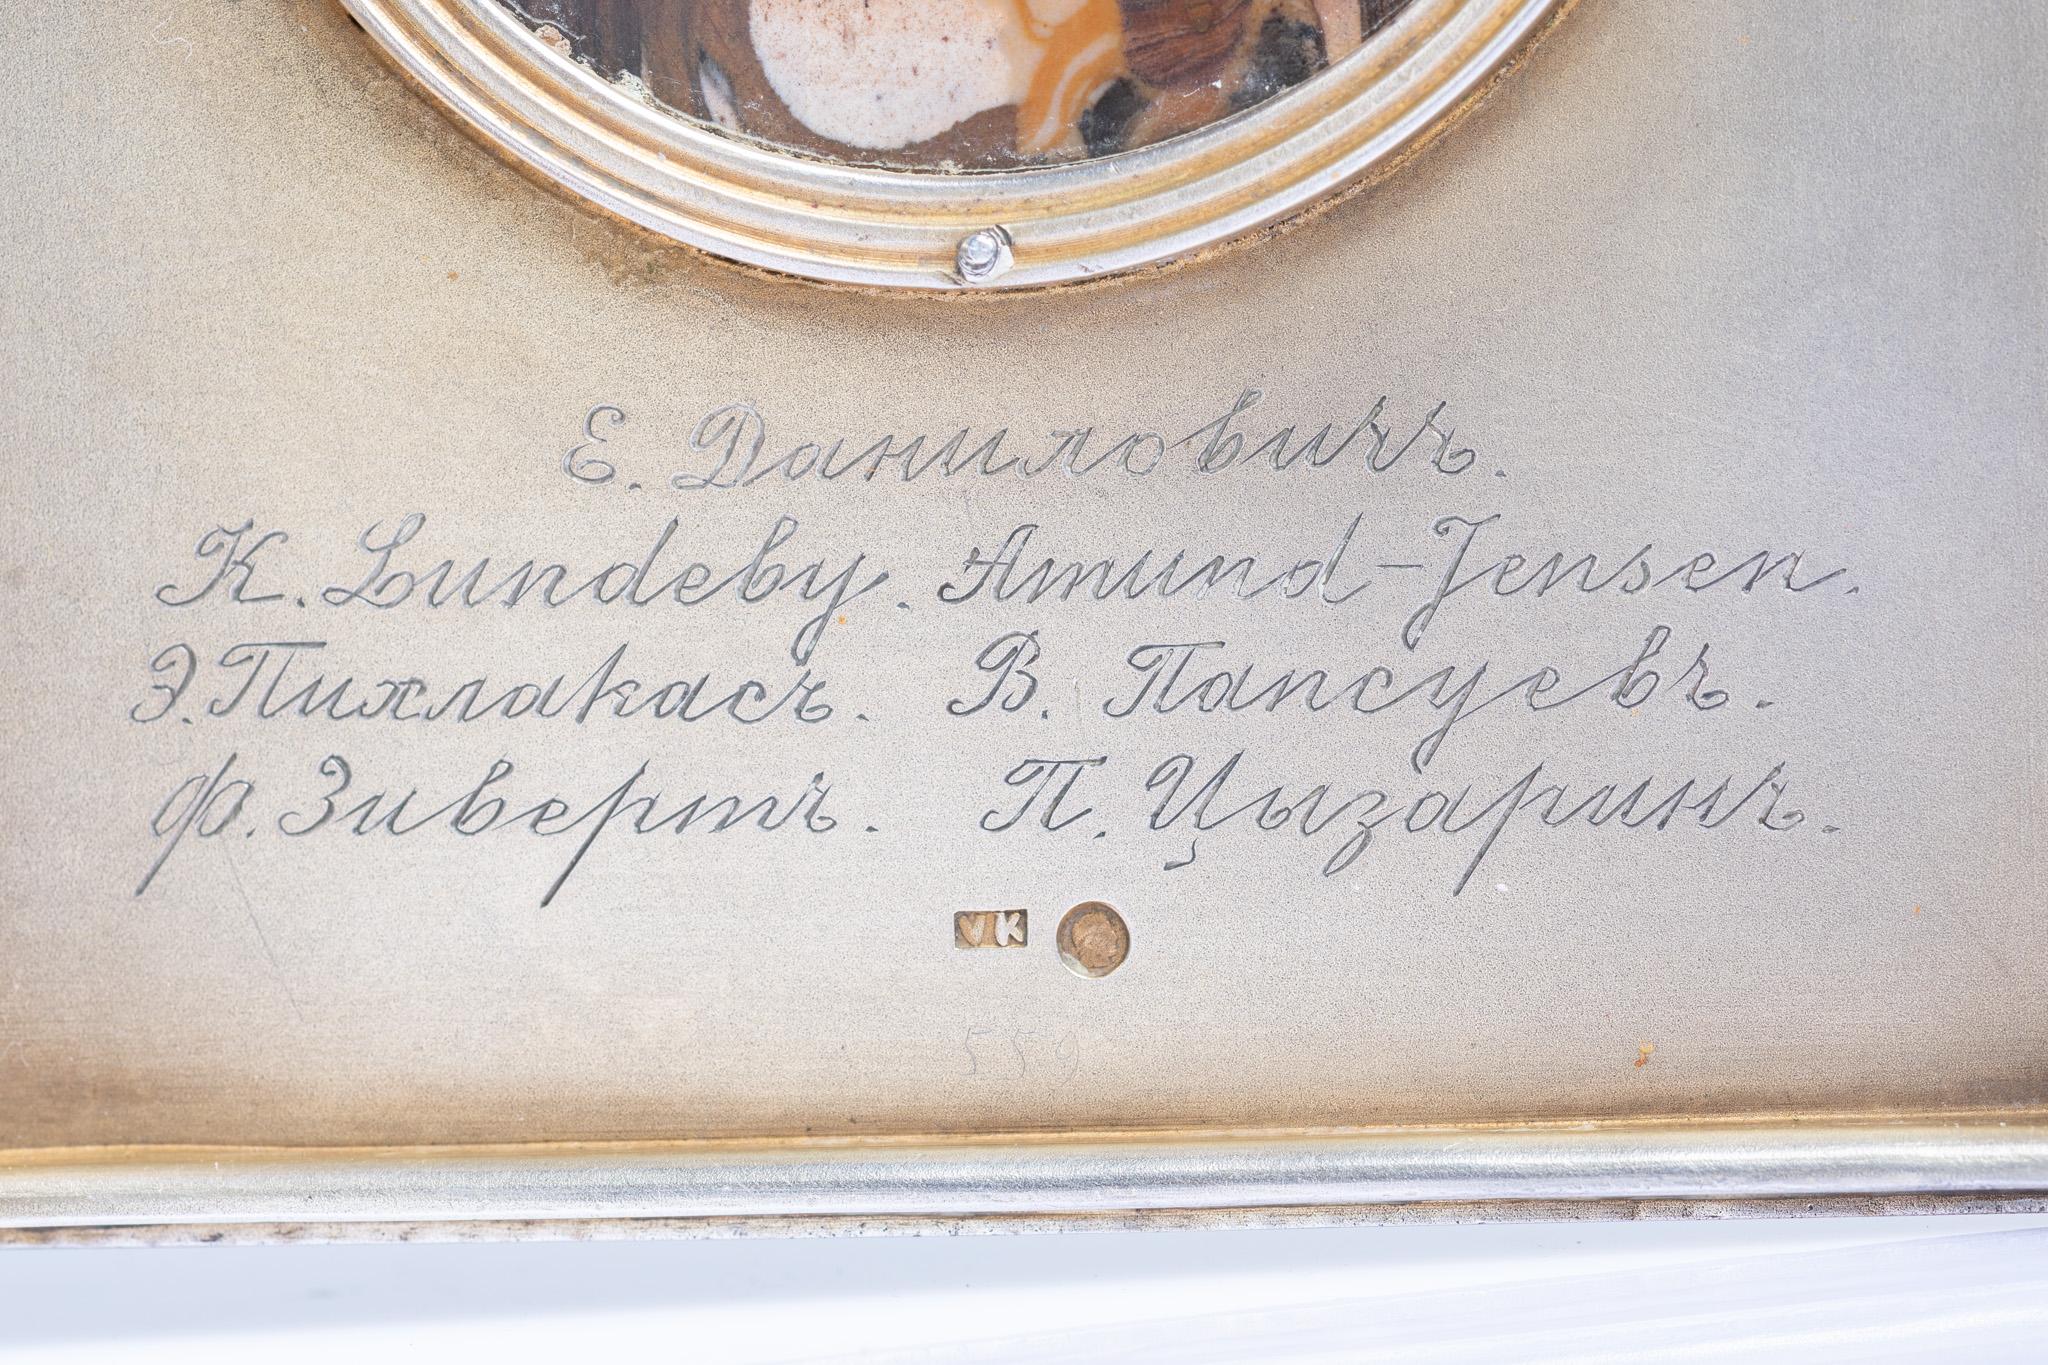 Е. Даниловичъ.
K. Lundeby. Amund-Jensen.
Э. Пихлакасъ. В. Папсуевъ.
Ф. Зивертъ. П. Цызаринъ.
VK
559